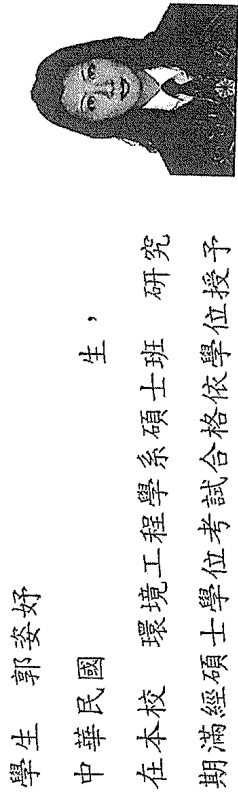 學生 郭姿妤
中華民國 生，
在本校 環境工程學系碩士班 研究
期滿經碩士學位考試合格依學位授予